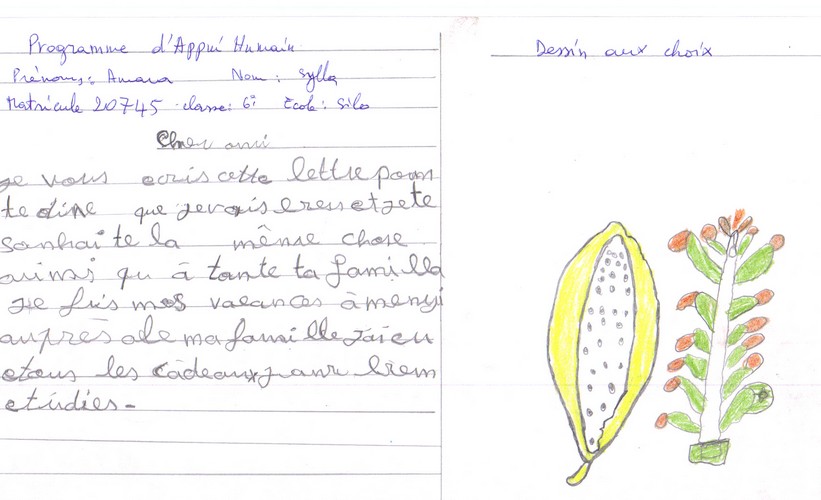 Programme d'Appui Humain
Dessin aux choix
Prénoms: Amara Nom: Sylla
Matricule 20745 classe: 6è Ecole: Silo
Cher ami
je vous ecris cette lettre pour
te dire que jevais et jete
souhaite la même chose
ainsi qu à toute ta famille
Je fais mes vacances à
auprès de ma famille J'ai eu
tous les cadeaux pour biem
etudies-